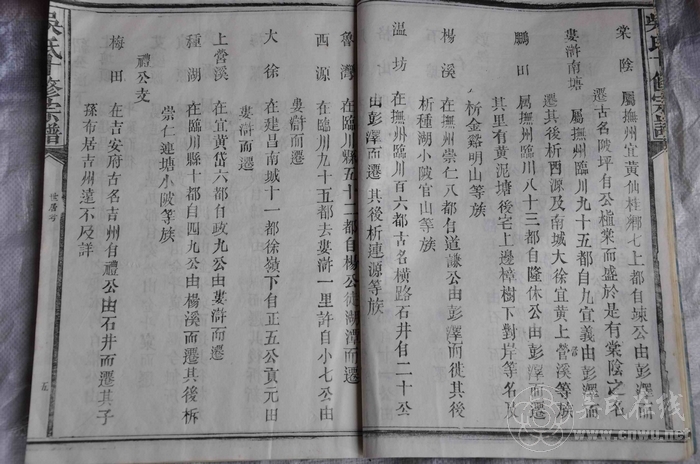 吳氏十修宗譜
棠陰 屬撫州宜黃仙桂鄉七上都自竦公由彭澤而
遷古名陂坪自公植棠而盛於是有棠陰之名
婁滸南塘 屬撫州臨川九十五都自九宣義由彭澤而
遷其後析西源及南城大徐宜黃上營溪等族
鵬田 屬撫州臨川八十三都自隆休公由彭澤而遷
其里有黃泥塘後宅上邊樟樹下對岸等名及
析金谿明山等族
楊溪 在撫州崇仁八都自道謙公由彭澤而徙其後
析種湖小陂官山等族
溫坊 在撫州臨川百六都古名橫路石井有二十公
由彭澤而遷其後析連源等族
魯灣 在臨川縣五十一都自楊公徒湖潭而遷
西源 在臨川九十五都去婁滸一里許自小七公由
婁滸而遷
大徐 在建昌南城十一都徐嶺下自正五公貢元由
婁滸而遷
上營溪 在宜黃岱六都自政九公由婁滸而遷
種湖 在臨川縣十都自四九公由楊溪而遷其後析
崇仁連塘小陂等族
禮公支
梅田 在吉安府古名吉州自禮公由石井而遷其子
孫布居吉州遠不及詳
吳氏十修宗譜
五
吴氏在线
www.cnwu.net